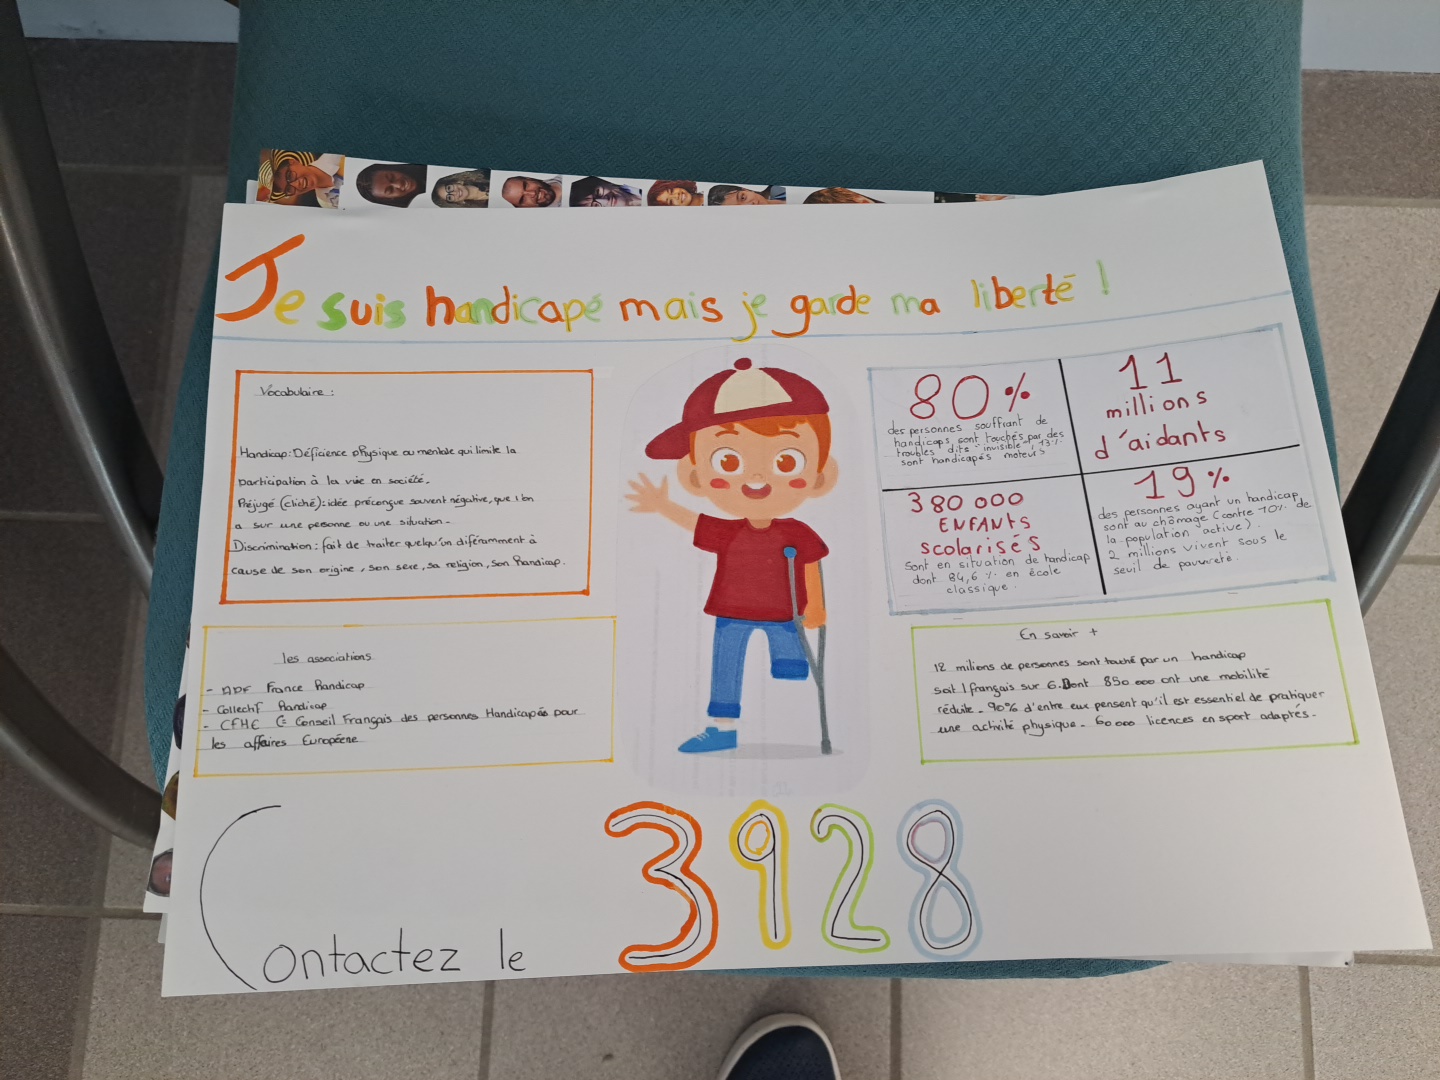 Je suis handicapé mais je garde ma liberté !
Vocabulaire :
Handicap : Déficience physique ou mentale qui limite la
participation à la vie en société.
Préjugé (cliché) : idée préconçue souvent négative, que l'on
a sur une personne ou une situation.
Discrimination : fait de traiter quelqu'un diféramment à
cause de son origine, son sexe, sa religion, son handicap.
les associations
- APF France handicap
- Collectif Handicap
- CFHE (= Conseil Français des personnes Handicapés pour
les affaires Européene
80 %
des personnes souffrant de
handicaps sont touchés par des
troubles dits "invisible" 13%
sont handicapés moteurs
11
millions
d'aidants
380 000
ENFANTS
scolarisés
Sont en situation de handicap
dont 84,6 % en école
classique.
19 %
des personnes ayant un handicap
sont au chômage (contre 10% de
la population active).
2 millions vivent sous le
seuil de pauvreté.
En savoir +
12 milions de personnes sont touché par un handicap
soit 1 français sur 6. Dont 850 000 ont une mobilité
réduite. 90% d'entre eux pensent qu'il est essentiel de pratiquer
une activité physique. 60 000 licences en sport adaptés.
Contactez le 3928